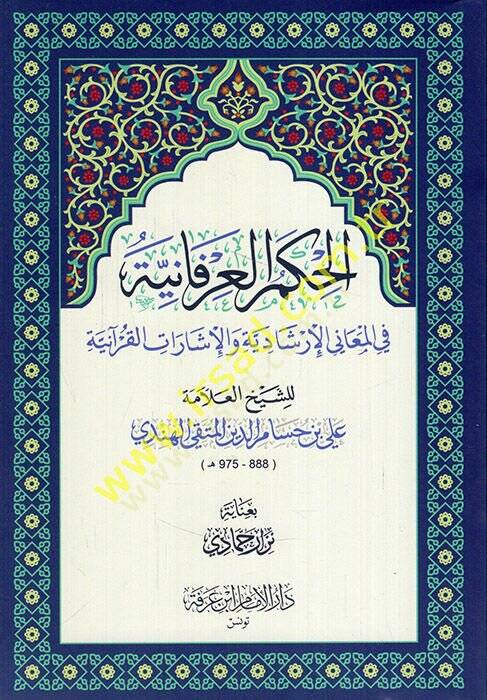 الحكم العرفانية
في المعاني الإرشادية والإشارات القرآنية
للشيخ العلامة
علي بن حسام الدين المتقي الهندي
( 888 - 975 هـ )
بعناية
نزار حمادي
دار الإمام ابن عرفة
تونس